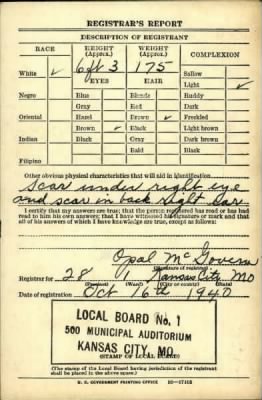 REGISTRAR'S REPORT
DESCRIPTION OF REGISTRANT
RACE HEIGHT (Approx.) WEIGHT (Approx.) COMPLEXION
White ✓ 6 ft 3 175 Sallow
EYES HAIR Light ✓
Negro Blue Blonde Ruddy
Gray Red Dark
Oriental Hazel Brown ✓ Freckled
Brown ✓ Black Light brown
Indian Black Gray Dark brown
Bald Black
Filipino
Other obvious physical characteristics that will aid in identification
Scar under right eye
and scar in back right Ear.
I certify that my answers are true; that the person registered has read or has had
read to him his own answers; that I have witnessed his signature or mark and that
all of his answers of which I have knowledge are true, except as follows:
Opal McGovern
(Signature of registrar)
Registrar for 28 1 Kansas City Mo
(Precinct) (Ward) (City or county) (State)
Date of registration Oct 16th 1940
LOCAL BOARD No. 1
500 MUNICIPAL AUDITORIUM
KANSAS CITY, MO.
(STAMP OF LOCAL BOARD)
(The stamp of the Local Board having jurisdiction of the registrant
shall be placed in the above space.)
U. S. GOVERNMENT PRINTING OFFICE